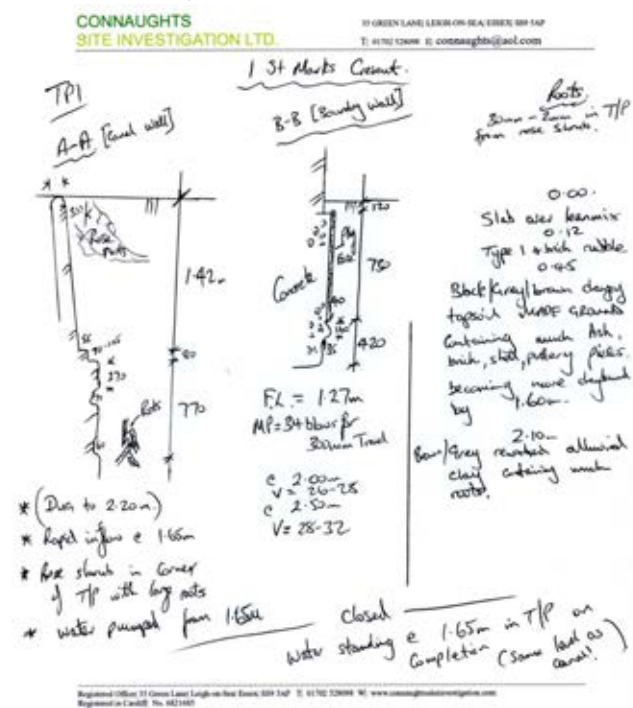 CONNAUGHTS
SITE INVESTIGATION LTD.
35 GREEN LANE, LEIGH-ON-SEA, ESSEX,
T: 01702 528098 E: connaughts@aol.com
1 St Marks Crescent.
TP1
A-A [Canal wall]
* *
Rose
Roots
1.42m
80
270
770
Roots
* (Dug to 2.20m)
* Rapid inflow @ 1.65m
* Rose shrub in corner
of T/P with large roots
* water pumped from 1.65m
B-B [Boundry wall]
120
Concrete
420
F.L. = 1.27m
MP = 34 blows for
300mm Travel
@ 2.00m
V = 26-28
@ 2.50m
V = 28-32
Roots
30mm - 2mm in T/P
from rose shrubs.
0.00.
Slab over leanmix
0.12
Type 1 + brick rubble
0.45
Black/Grey/brown clayey
topsoil MADE GROUND
Containing much Ash,
brick, shell, pottery pieces.
becoming more
by 1.60m.
2.10m
Grey alluvial
clay containing much
roots.
Closed
Water standing @ 1.65m in T/P on
completion (Same level as
canal!)
Registered Office: 35 Green Lane, Leigh-on-Sea, Essex, T: 01702 528098 W: www.connaughtssiteinvestigation.com
Registered in Cardiff No.